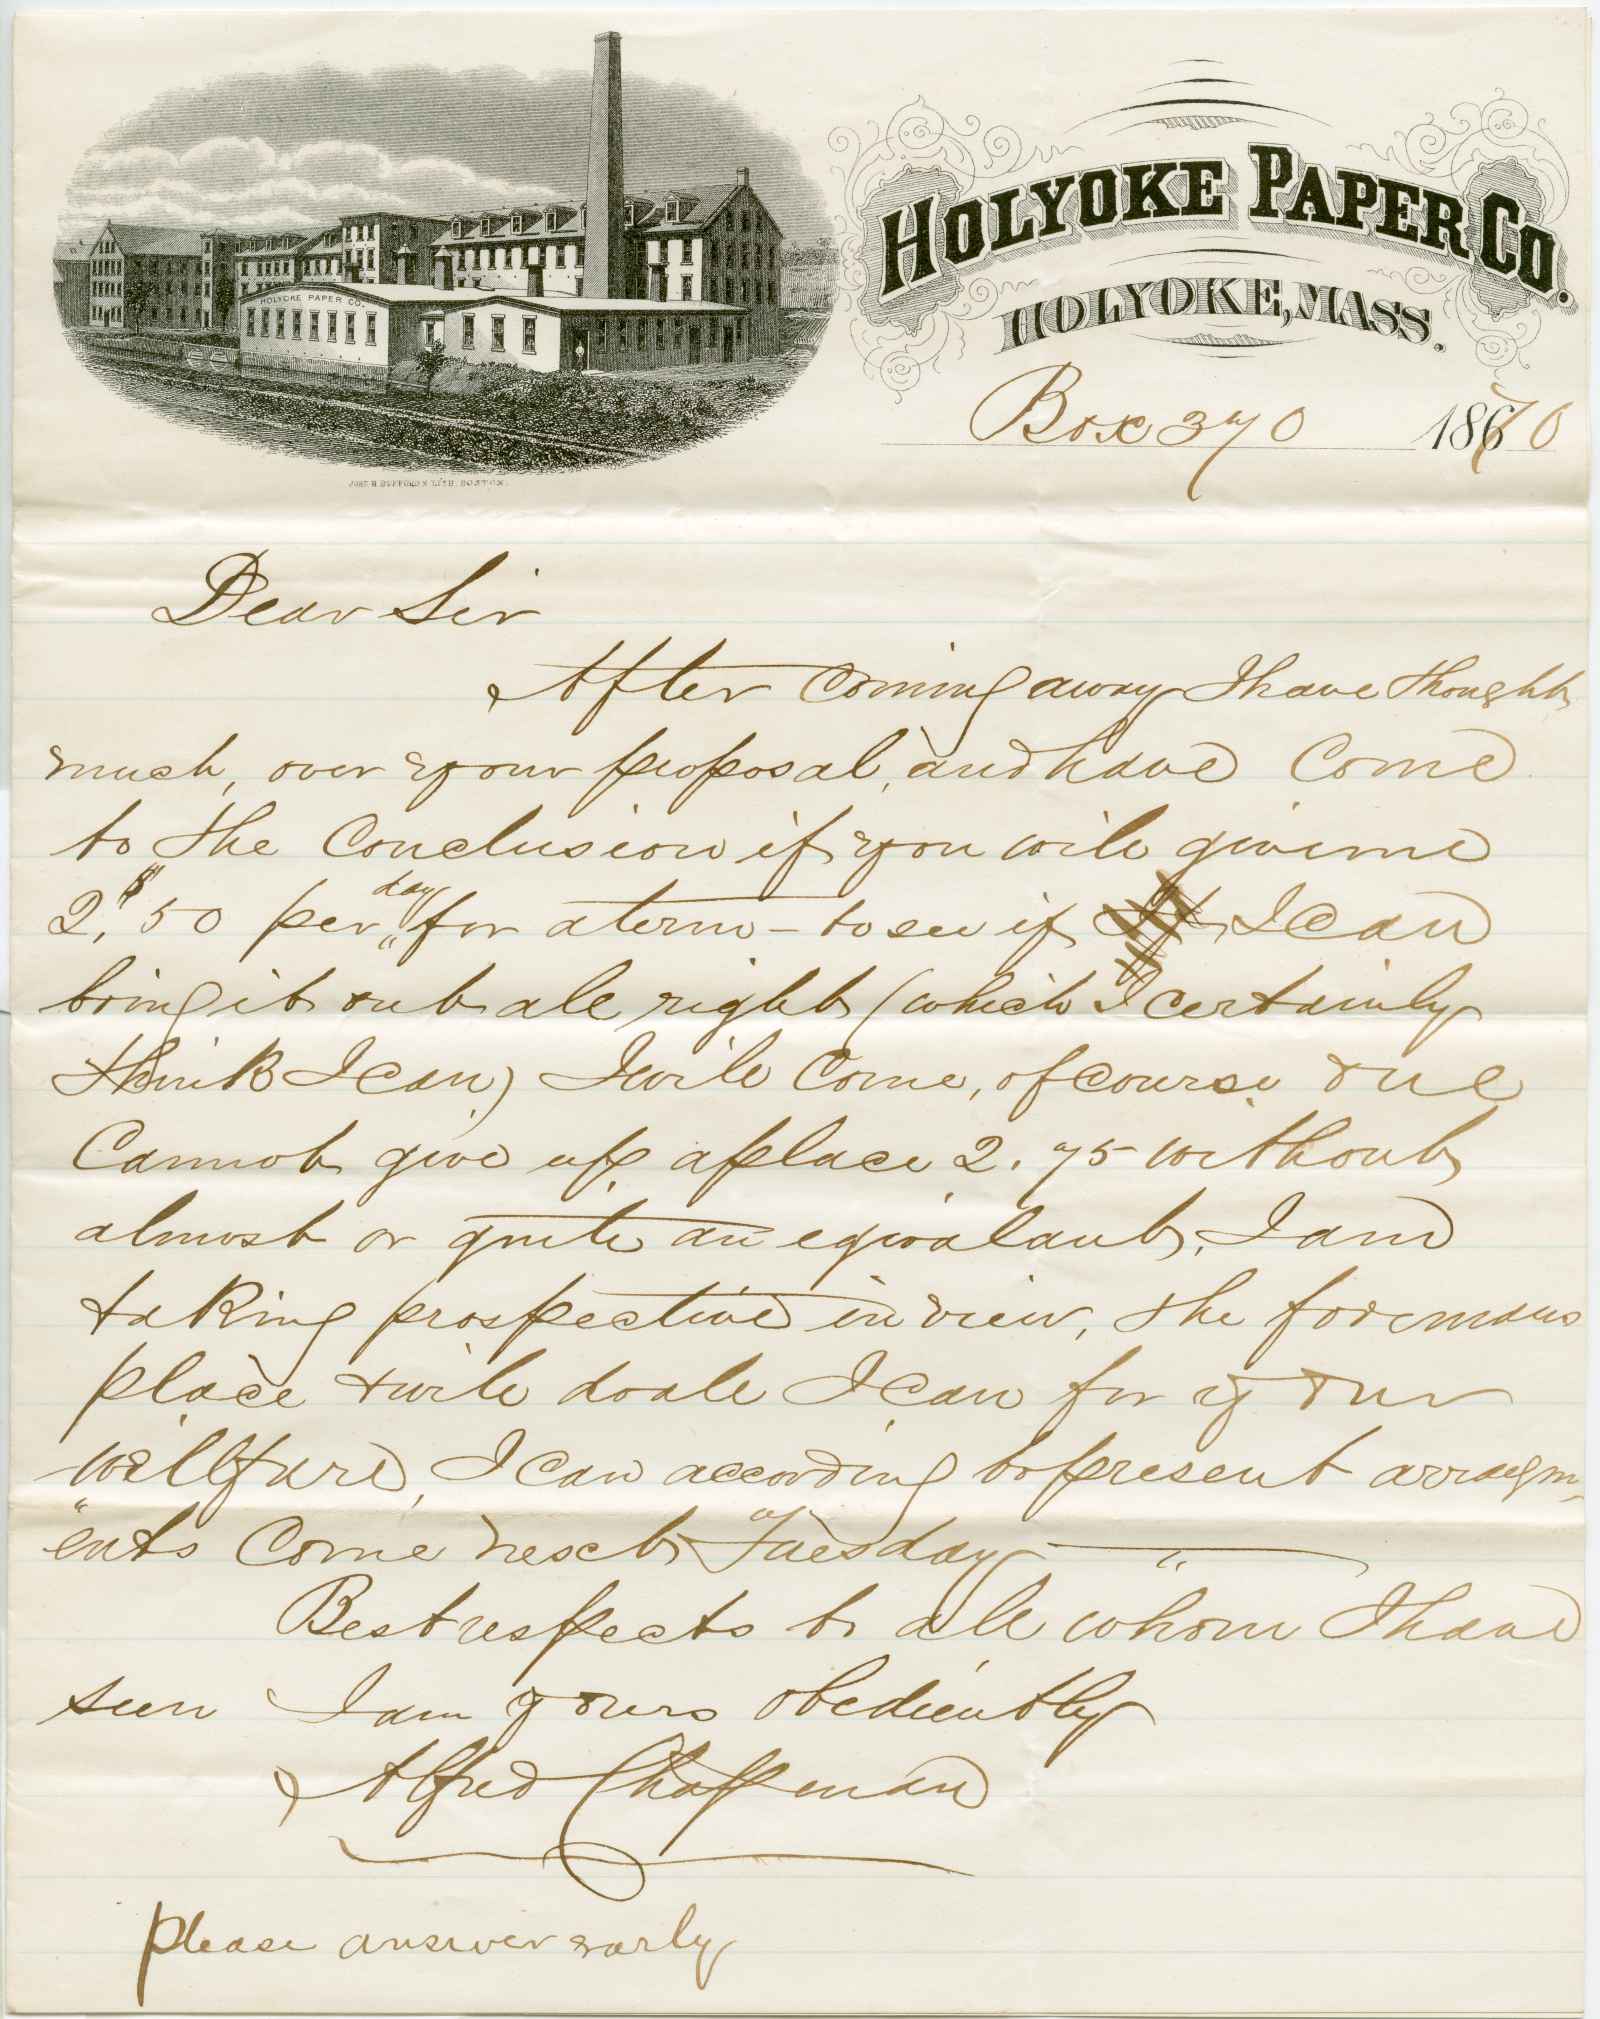 HOLYOKE PAPER CO.
HOLYOKE PAPER CO.
HOLYOKE, MASS.
Box 370 1870
JOHN H BUFFORD'S LITH. BOSTON.
Dear Sir
After coming away I have thought
much, over your proposal, and have come
to the conclusion if you will give me
2.$50 per day for a term - to see if I can
bring it out all right (which I certainly
think I can) I will come, of course one
cannot give up a place 2.75 without
almost or quite an eqivalant, I am
taking prospective in view, the foremans
place & will do all I can for your
wellfare, I can according to present arragm-
"ents come next Tuesday "
Best respects to all whom I have
seen I am yours obediently
Alfred Chapman
please answer early